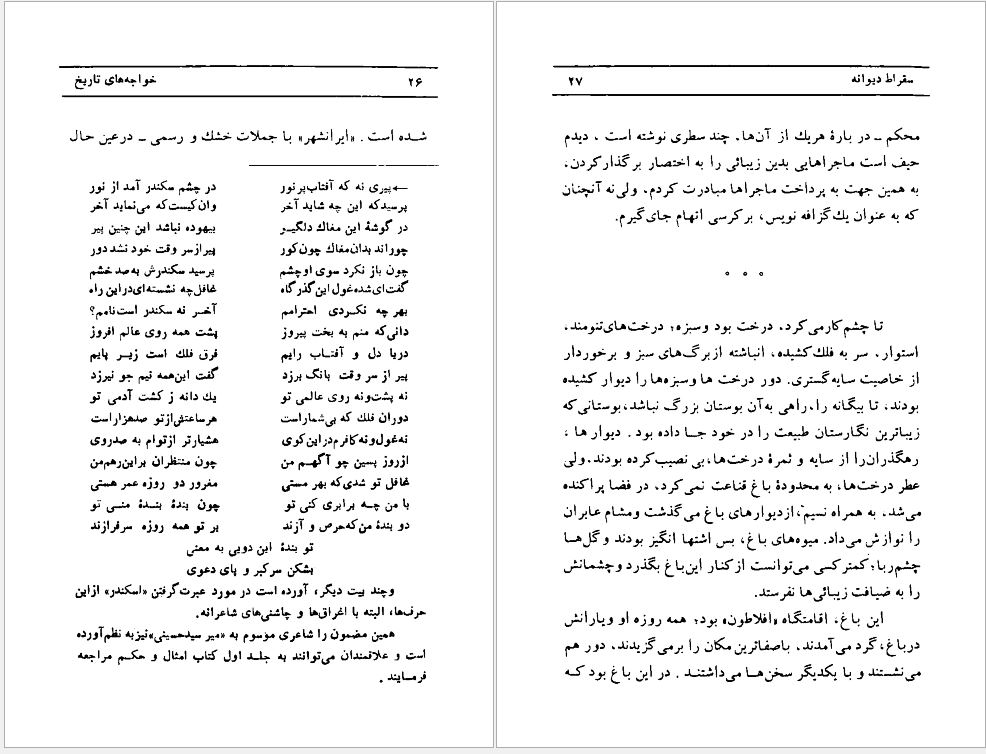 ۲۶ خواجه‌های تاریخ
شده است . «ایرانشهر» با جملات خشك و رسمی ـ درعین حال
←پیری نه که آفتاب پر نور در چشم سکندر آمد از نور
پرسید که این چه شاید آخر وان کیست که می‌نماید آخر
در گوشهٔ این مغاك دلگیر بیهوده نباشد این چنین پیر
چوراند بدان مغاك چون کور پیر از سر وقت خود نشد دور
چون باز نکرد سوی او چشم پرسید سکندرش به صد خشم
گفت ای شده غول این گذر گاه غافل چه نشسته‌ای در این راه
بهر چه نکردی احترامم آخر نه سکندر است نامم؟
دانی که منم به بخت پیروز پشت همه روی عالم افروز
دریا دل و آفتاب رایم فرق فلك است زیر پایم
پیر از سر وقت بانگ برزد گفت این همه نیم جو نیرزد
نه پشت ونه روی عالمی تو یك دانه ز کشت آدمی تو
دوران فلك که بی‌شمار است هر ساعتش از تو صد هزار است
نه غول و نه کافرم در این کوی هشیارتر از توام به صد روی
از روز پسین چو آگهم من چون منتظران بر این رهم من
غافل تو شدی که بهر مستی مغرور دو روزه عمر هستی
با من چه برابری کنی تو چون بندهٔ بندهٔ منی تو
دو بندهٔ من که حرص و آزند بر تو همه روزه سرفرازند
تو بندهٔ این دویی به معنی
بشکن سر کبر و پای دعوی
وچند بیت دیگر، آورده است در مورد عبرت گرفتن «اسکندر» از این
حرف‌ها، البته با اغراق‌ها و چاشنی‌های شاعرانه.
همین مضمون را شاعری موسوم به «میر سید حسینی» نیز به نظم آورده
است و علاقمندان می‌توانند به جلد اول کتاب امثال و حکم مراجعه
فرمایند .
سقراط دیوانه ۲۷
محکم ـ در بارهٔ هریك از آن‌ها، چند سطری نوشته است . دیدم
حیف است ماجراهایی بدین زیبائی را به اختصار برگذار کردن.
به همین جهت به پرداخت ماجراها مبادرت کردم، ولی نه آنچنان
که به عنوان یك گزافه نویس، بر کرسی اتهام جای گیرم.
° ° °
تا چشم کار می‌کرد، درخت بود وسبزه؛ درخت‌های تنومند،
استوار، سر به فلك کشیده، انباشته از برگ‌های سبز و برخوردار
از خاصیت سایه گستری. دور درخت ها وسبزه‌ها را دیوار کشیده
بودند، تا بیگانه را، راهی به آن بوستان بزرگ نباشد، بوستانی که
زیباترین نگارستان طبیعت را در خود جا داده بود . دیوار ها ،
رهگذران را از سایه و ثمرهٔ درخت‌ها، بی نصیب کرده بودند. ولی
عطر درخت‌ها، به محدودهٔ باغ قناعت نمی‌کرد، در فضا پراکنده
می‌شد، به همراه نسیم، از دیوارهای باغ می‌گذشت ومشام عابران
را نوازش می‌داد. میوه‌های باغ، بس اشتها انگیز بودند و گل‌ها
چشم ربا؛ کمتر کسی می‌توانست از کنار این باغ بگذرد وچشمانش
را به ضیافت زیبائی‌ها نفرستد.
این باغ، اقامتگاه «افلاطون» بود؛ همه روزه او ویارانش
در باغ، گرد می آمدند، باصفاترین مکان را برمی‌گزیدند، دور هم
می‌نشستند و با یکدیگر سخن‌ها می‌داشتند . در این باغ بود که